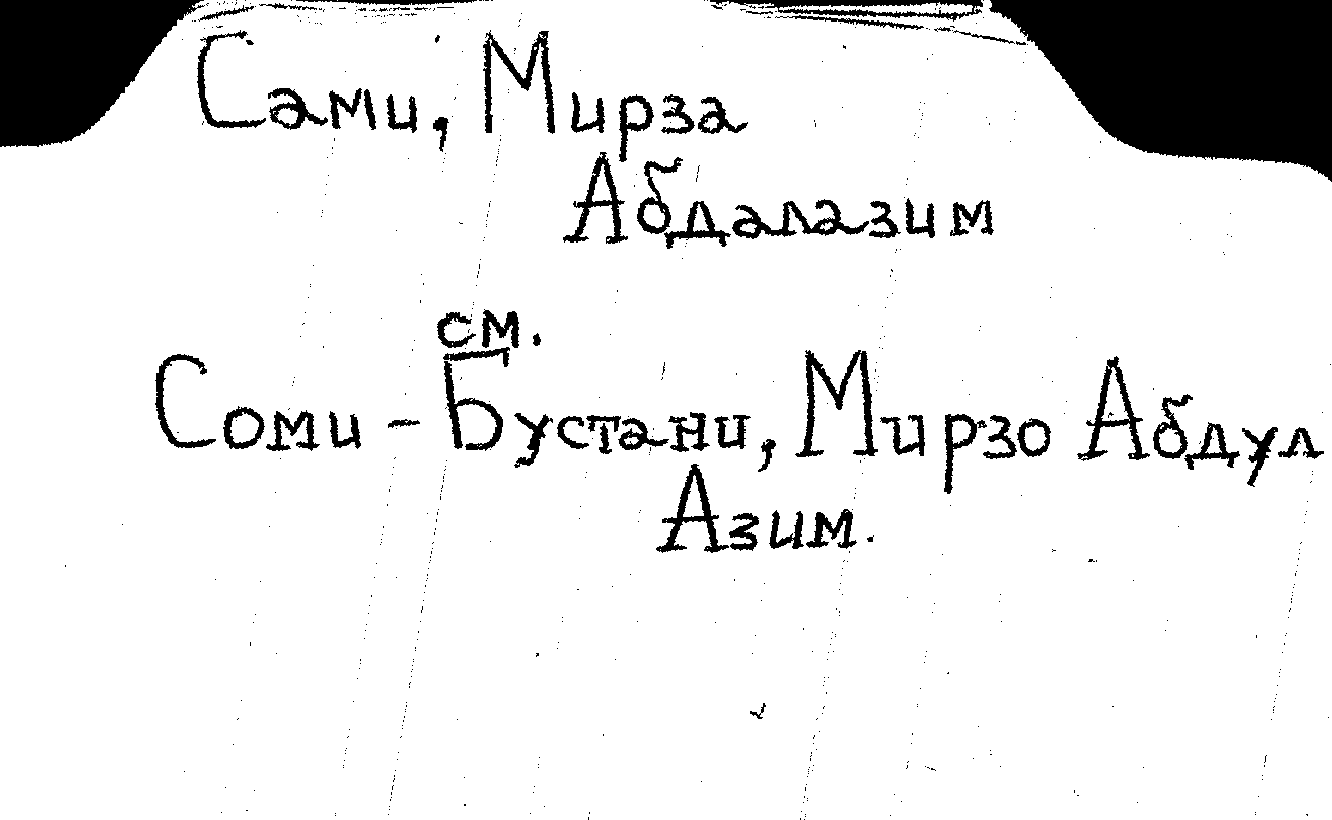 Сами, Мирза
Абдалазим
см.
Соми - Бустани, Мирзо Абдул
Азим.